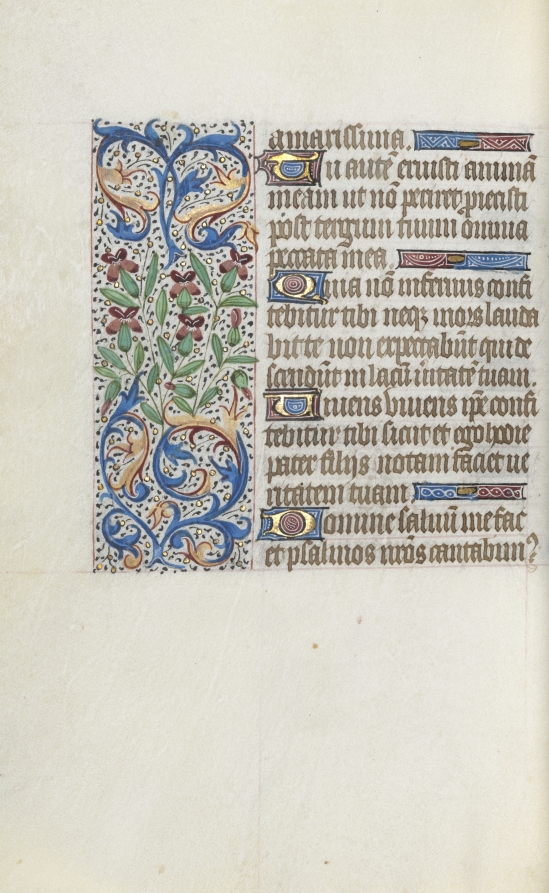 amarissima.
Tu autē eruisti animā
meam ut nō periret proiecisti
post tergum tuum ōmnia
peccata mea.
Quia nō infernus confi
tebitur tibi neq; mors lauda
bit te non expectabūt qui de
scendūt in lacū ueritatē tuam.
Viuens viuens ip̄e confi
tebitur tibi sicut et ego hodie
pater filijs notam faciet ue
ritatem tuam.
Domine saluū me fac
et psalmos nrōs cantabim9